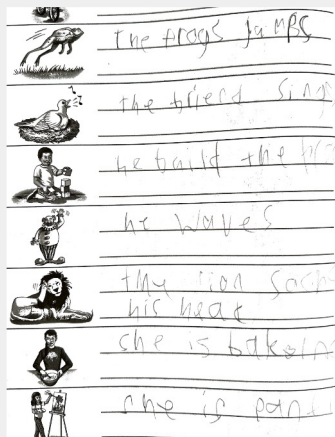 the frogs jamps
the brierd sing
he baild the
he waves
the lion
his head
she is
she is pant